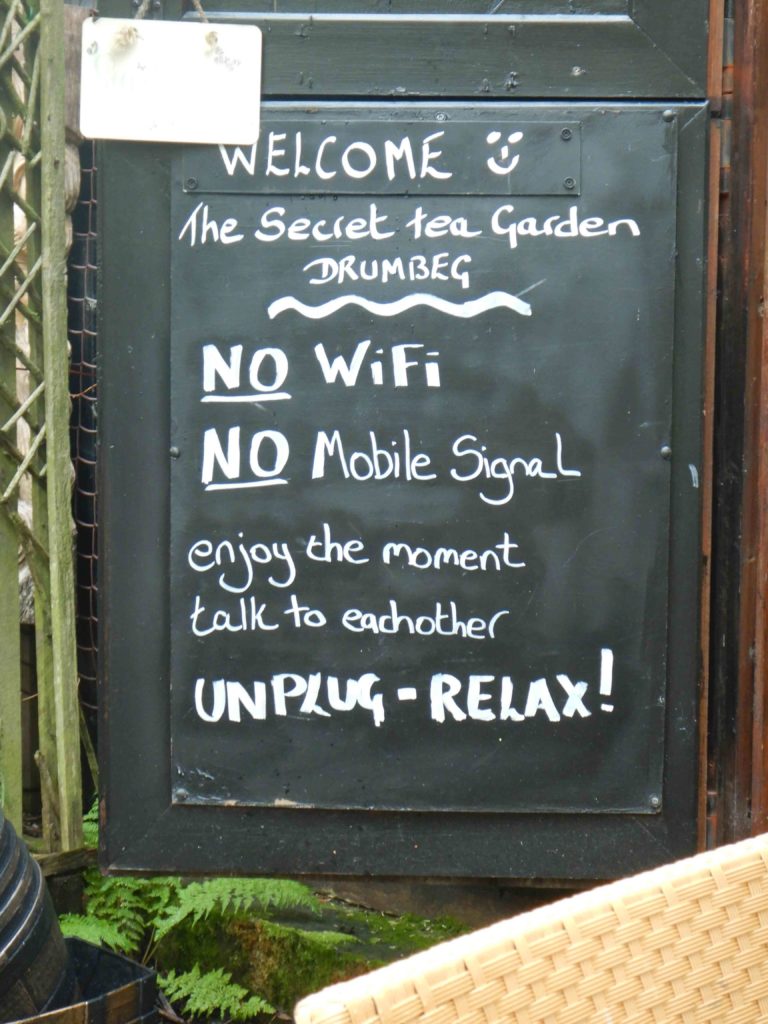 WELCOME
The Secret tea Garden
DRUMBEG
NO WiFi
NO Mobile Signal
enjoy the moment
talk to eachother
UNPLUG - RELAX!